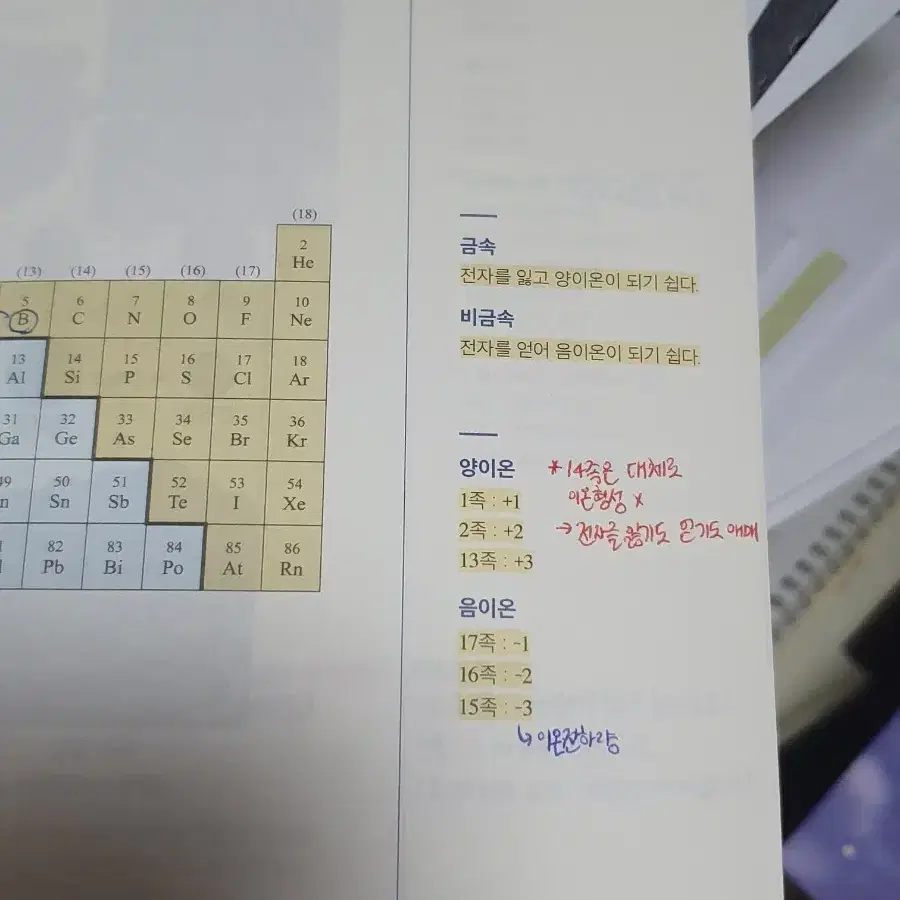 (18)
2
He
(13) (14) (15) (16) (17)
5 6 7 8 9 10
B C N O F Ne
13 14 15 16 17 18
Al Si P S Cl Ar
31 32 33 34 35 36
Ga Ge As Se Br Kr
49 50 51 52 53 54
n Sn Sb Te I Xe
82 83 84 85 86
Pb Bi Po At Rn
금속
전자를 잃고 양이온이 되기 쉽다.
비금속
전자를 얻어 음이온이 되기 쉽다.
양이온 *14족은 대체로
1족 : +1 이온형성 x
2족 : +2 →전자를 잃기도 얻기도 애매
13족 : +3
음이온
17족 : -1
16족 : -2
15족 : -3
↳이온전하량